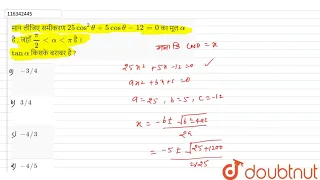 116342445
मान लीजिए समीकरण 25 cos² θ + 5 cos θ − 12 = 0 का मूल α
है, जहाँ π/2 < α < π है।
tan α किसके बराबर है ?
a) −3/4
b) 3/4
c) −4/3
d) −4/5
माना कि cosθ = x
25x² + 5x − 12 = 0
ax² + bx + c = 0
a = 25, b = 5, c = −12
x = −b ± √b² − 4ac
2a
= −5 ± √25 + 1200
2×25
doubtnut